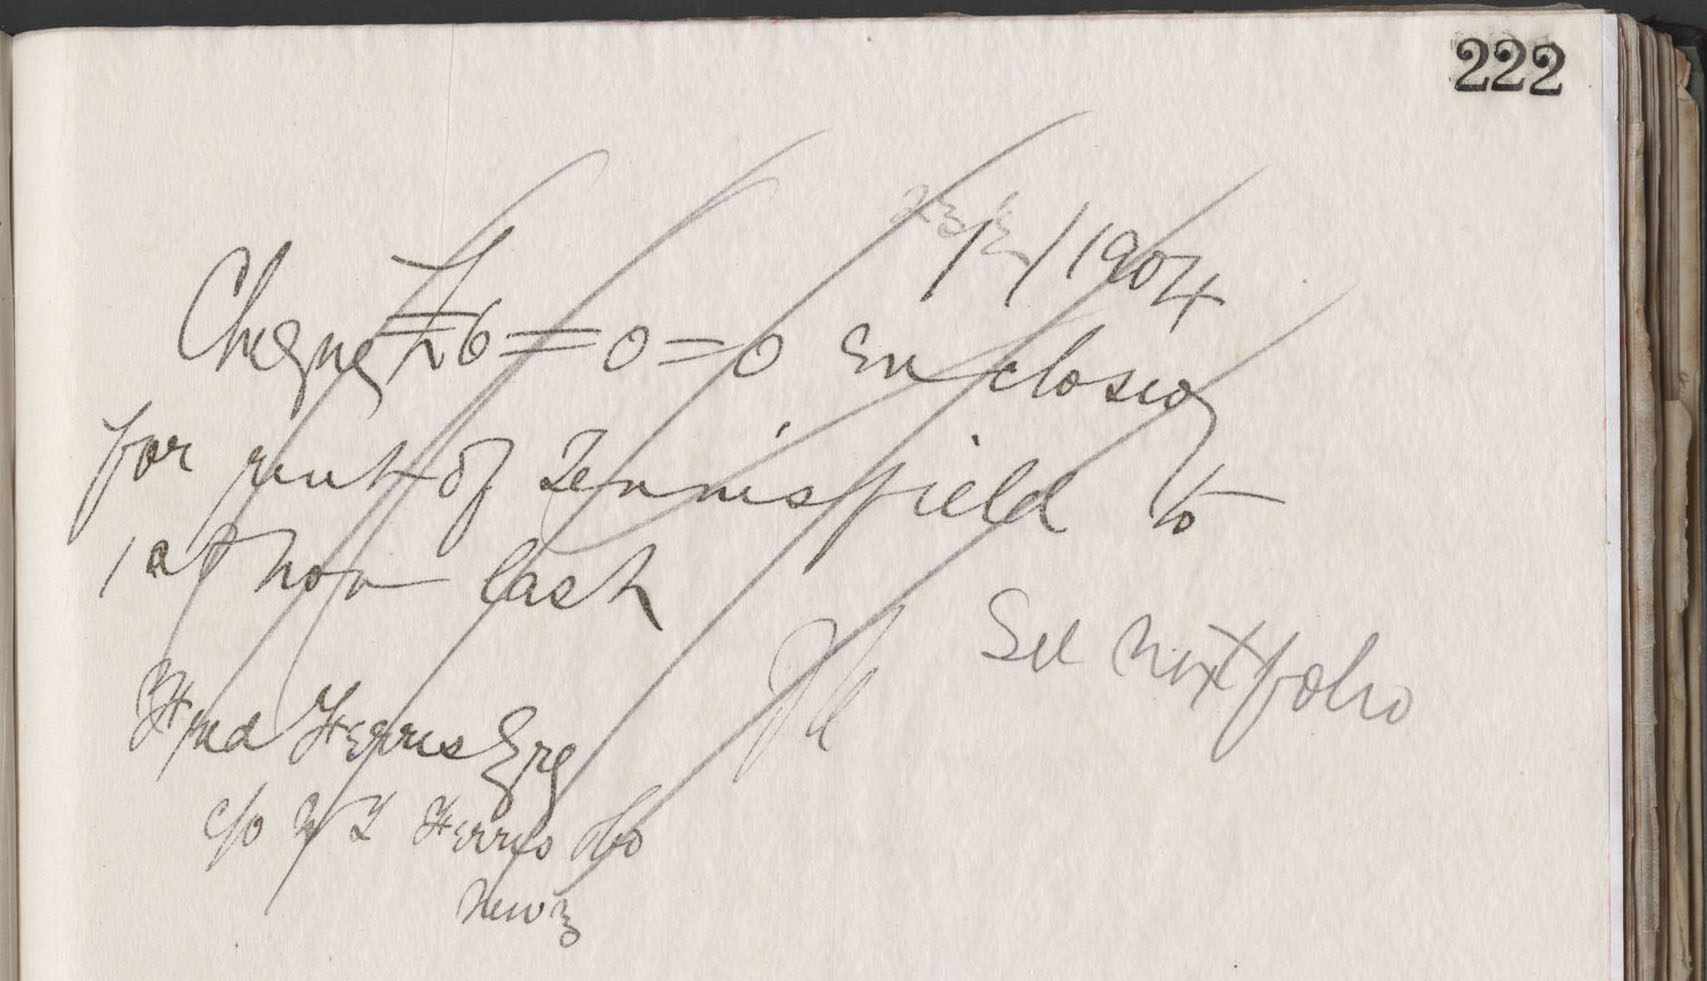 222
23/2/1904
Cheque £6=0=0 Enclosed
for rent of Tennisfield to
1st Nov last
See next folio
Fred Ferris Esq
c/o W L Ferris